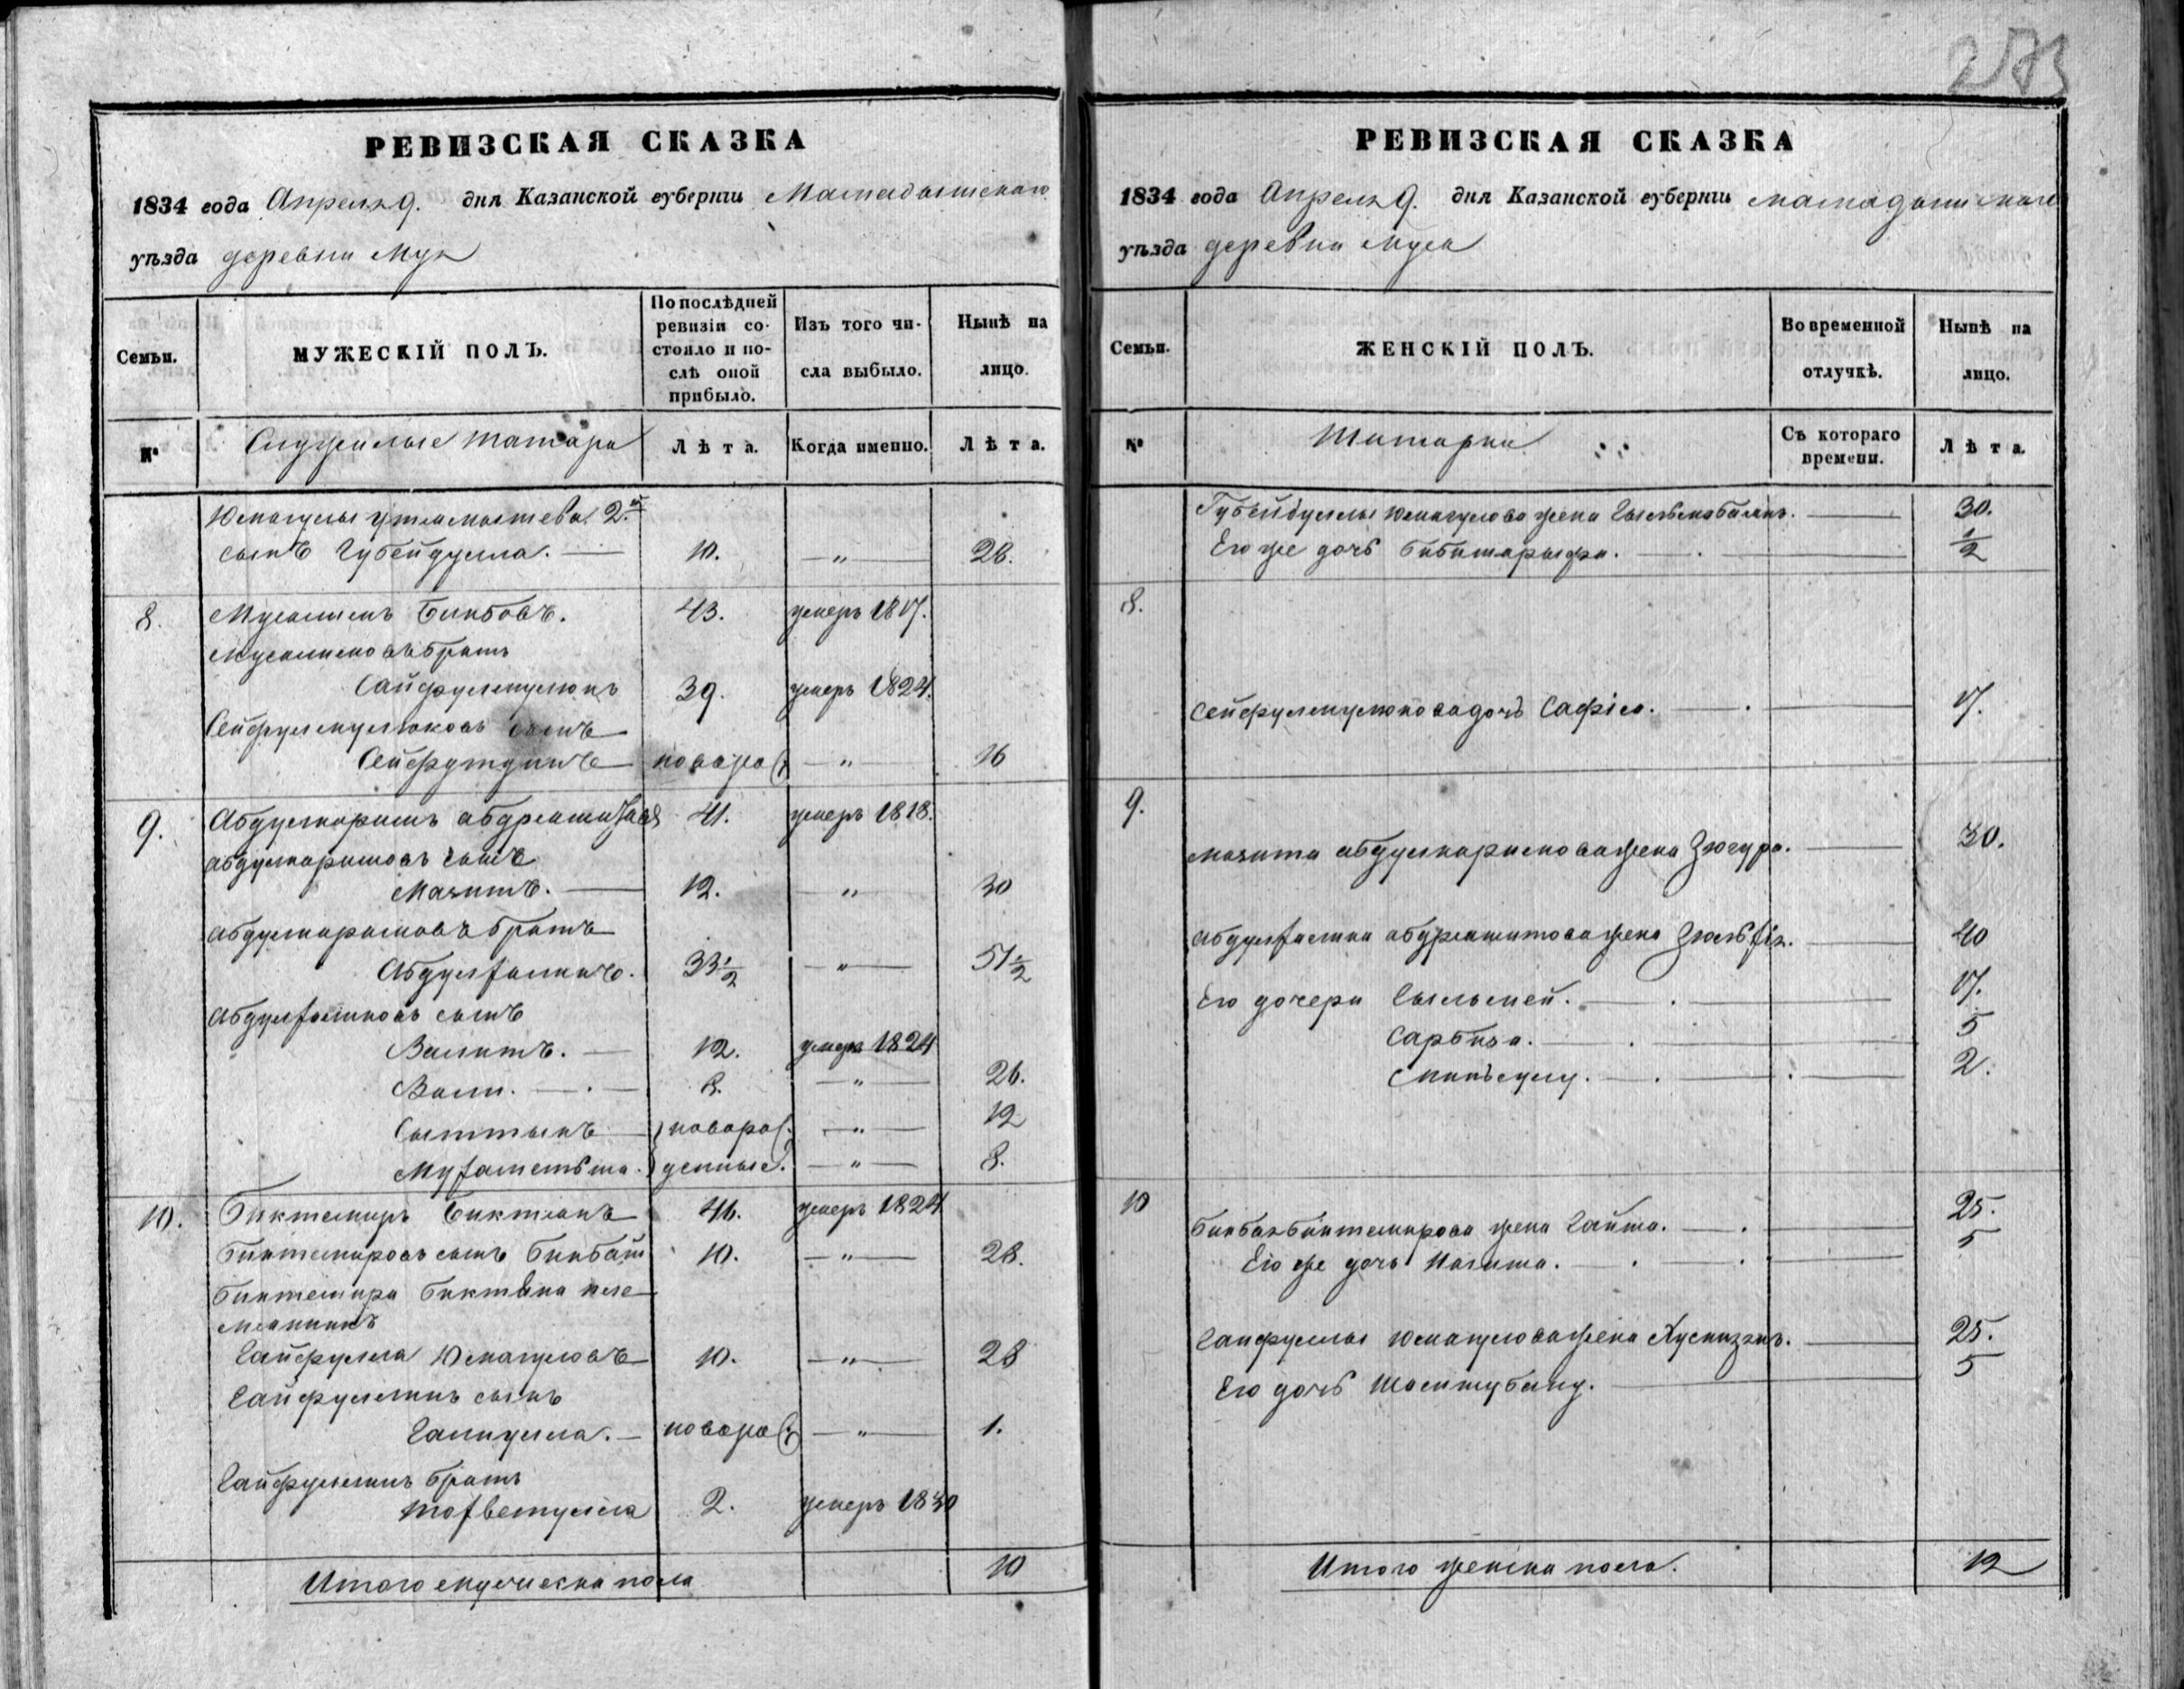 273
РЕВИЗСКАЯ СКАЗКА
1834 года Апреля 9. дня Казанской губернии Мамадышскаго
уѣзда деревни Мук
Семьи.
МУЖЕСКІЙ ПОЛЪ.
По послѣдней ревизіи состояло и послѣ оной прибыло.
Изъ того числа выбыло.
Нынѣ на лицо.
№
Служилые татара
Лѣта.
Когда именно.
Лѣта.
Юмагулы Утямышева 2й
сынъ Губейдулла. 10. „ 28.
8. Мусалимъ Бикбовъ. 43. умеръ 1817.
Мусалимовъ братъ
Сайфулмулюкъ 39. умеръ 1824.
Сейфулмулюковъ сынъ
Сейфутдинъ новорож „ 16
9. Абдулкаримъ Абдряшитовъ 41. умеръ 1818.
Абдулкаримовъ сынъ
Мазитъ. 12. „ 30
Абдулкаримовъ братъ
Абдулзялилъ. 33½ „ 51½
Абдулзялиловъ сынъ
Валитъ. 12. умеръ 1824
Вали. 8. „ 26.
Сыттыкъ новорож „ 12
денные. „ 8.
10. Биктемиръ Биктянъ 46. умеръ 1824
Биктемировъ сынъ Бикбай 10. „ 28.
Биктемира Биктяна пле
мянникъ
Гайфулла Юмагуловъ 10. „ 28
Гайфуллинъ сынъ
Галиулла. новорож „ 1.
Гайфуллинъ братъ
2. умеръ 1830
Итого мужеска пола 10
РЕВИЗСКАЯ СКАЗКА
1834 года Апреля 9. дня Казанской губернии Мамадышскаго
уѣзда деревни
Семьи.
ЖЕНСКІЙ ПОЛЪ.
Во временной отлучкѣ.
Нынѣ на лицо.
№
Татарки
Съ котораго времени.
Лѣта.
Губейдуллы Юмагулова жена 30.
Его же дочь Бибишарыфа. ½
8.
Сейфулмулюкова дочь Сафія. 17.
9.
Мазита Абдулкаримова жена Зюгура. 30.
Абдулзялила Абдряшитова жена 40
Его дочери 17.
Сарбиза. 5
Минъсулу. 2.
10
Бикбая Биктемирова жена Гайша. 25.
Его же дочь 5
Гайфуллы Юмагулова жена 25.
Его дочь 5
Итого женска пола. 12